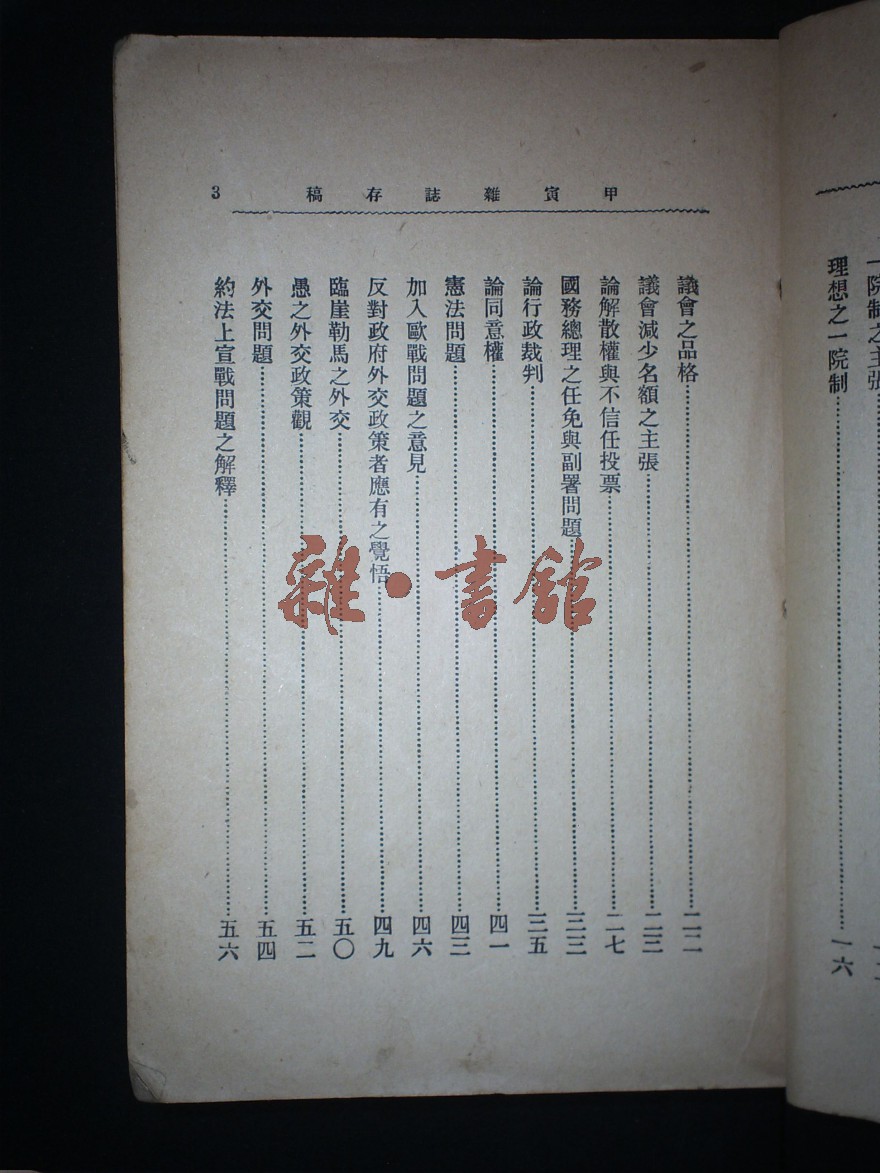 一院制之主張
理想之一院制……一六
甲寅雜誌存稿 3
議會之品格……二二
議會減少名額之主張……二三
論解散權與不信任投票……二七
國務總理之任免與副署問題……三三
論行政裁判……三五
論同意權……四一
憲法問題……四三
加入歐戰問題之意見……四六
反對政府外交政策者應有之覺悟……四九
臨崖勒馬之外交……五〇
愚之外交政策觀……五二
外交問題……五四
約法上宣戰問題之解釋……五六
雜·書館